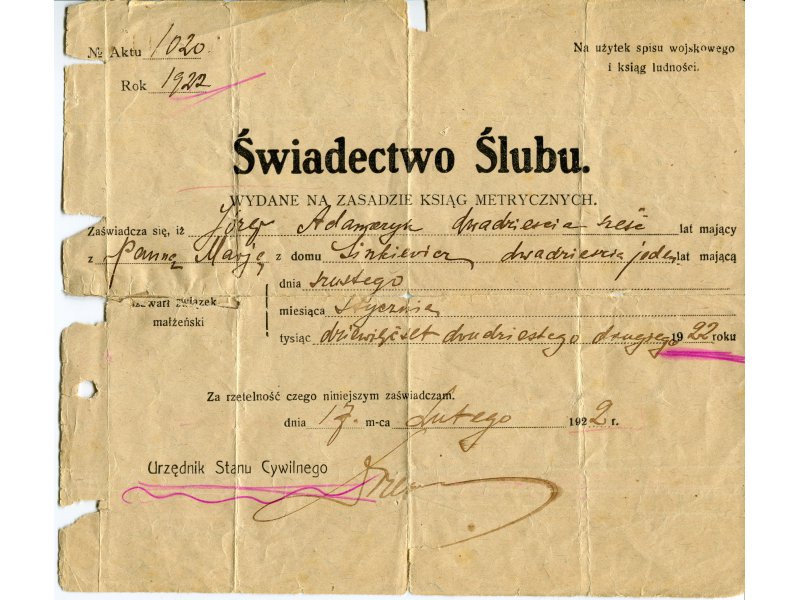 № Aktu 1020.
Rok 1922
Na użytek spisu wojskowego
i ksiąg ludności.
Świadectwo Ślubu.
WYDANE NA ZASADZIE KSIĄG METRYCZNYCH.
Zaświadcza się, iż Józef Adamczyk dwadzieścia sześć lat mający
z Panną Marją z domu Sinkiewicz dwadzieścia jeden lat mającą
zawarł związek
małżeński
dnia szustego
miesiąca Stycznia
tysiąc dziewięćset dwudziestego drugiego 1922 roku
Za rzetelność czego niniejszym zaświadczam.
dnia 17. m-ca Lutego 1922 r.
Urzędnik Stanu Cywilnego